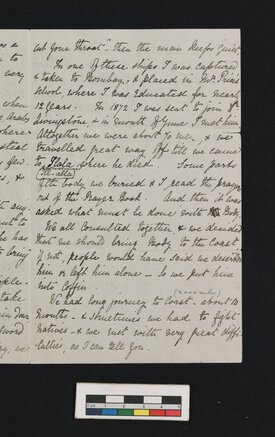 cut your throat". Then the man keeps quiet
In one of these ships I was captured
& taken to Bombay, & placed in Mr. Prices
School, where I was Educated for nearly
12 Years. In 1872 I was sent to join Dr.
Livingstone & in month of June I met him
Altogether we were about 70 men, & we
travelled great way off till we came
to Ilala where he died. Some parts
(Ill-alla)
of the body we buried & I read the prayers
out of the Prayer Book. And then it was
asked what must be done with the Body,
We all Consulted together & we decided
that we should bring Body to the Coast
if not, people would have said we deserted
him or left him alone - So we put him
into Coffin
We had long journey to Coast - about 10
months - & sometimes we had to fight
natives - & we met with very great diffi-
culties, as I can tell you.
very
when
few.
&
any
to
he has
to bring
people-
take
sword